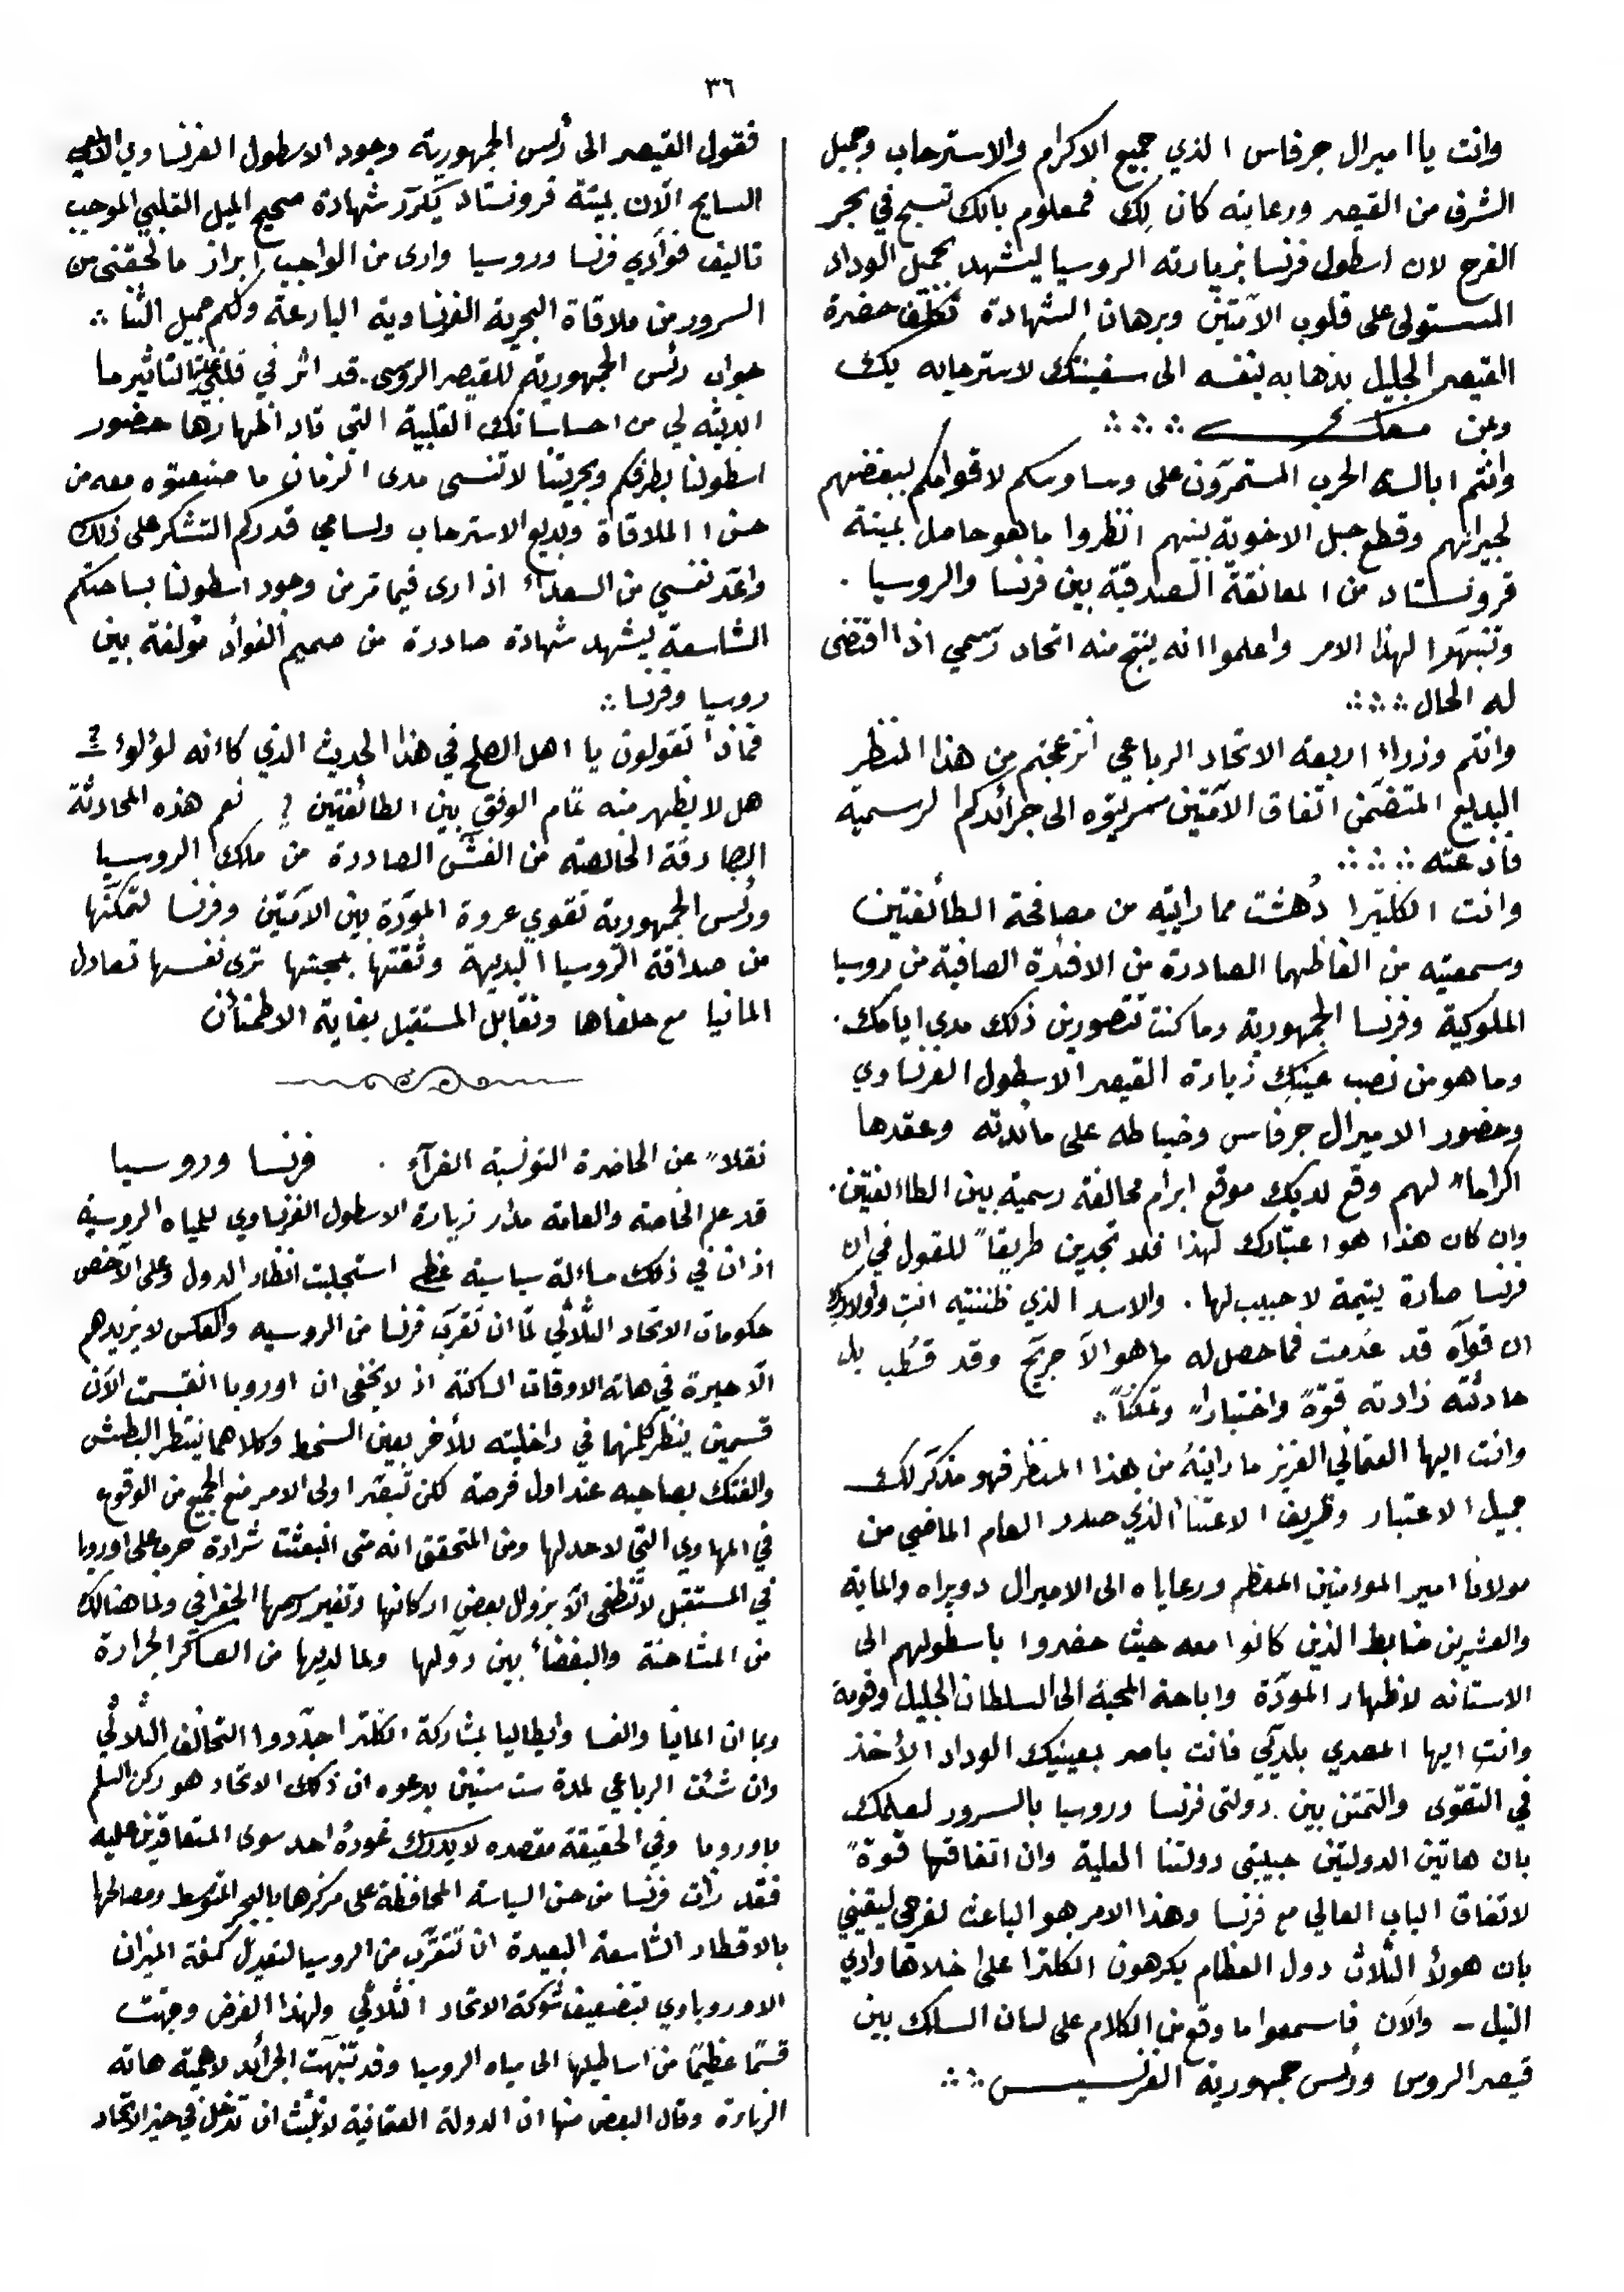 ٣٦
وانت يا اميرال جرفاس الذي جميع الاكرام والاسترحاب وجميل
الشرف من القيصر ورعايته كان لك فمعلوم بانك تسبح في بحر
الفرح لان اسطول فرنسا بزيارته الروسيا ليشهد بجميل الوداد
المستولي على قلوب الامّتين وبرهان الشهادة تكلّف حضرة
القيصر الجليل بذهابه بنفسه الى سفينتك لاسترحابه بك
ومن معك
وانتم ابالسة الحرب المستمرّون على وساوسكم لاقوامكم ببغضهم
لجيرانهم وقطع حبل الاخوية بينهم انظروا ما هو حاصل بمينة
قرونستاد من المعانقة الصدقيّة بين فرنسا والروسيا .
وتنبّهوا لهذا الامر واعلموا انه ينتج منه اتحاد رسمي اذا اقتضى
له الحال
وانتم وزراء اربعة الاتحاد الرباعي انزعجتم من هذا المنظر
البديع المتضمّن اتفاق الامّتين سريتوه الى جرائدكم الرسمية
فاذعته
وانت انكلتيرا دُهشت مما رايتيه من مصافحة الطائفتين
وسمعتيه من الفاظهما الصادرة من الافئدة الصافية من روسيا
الملوكية وفرنسا الجمهورية وما كنت تتصورين ذلك مدى ايامك .
وما هو من نصب عينكِ زيارة القيصر الاسطول الفرنساوي
وحضور الاميرال جرفاس وضباطه على مائدته وعقدها
اكراماً لهم وقع لديك موقع ابرام محالفة رسمية بين الطائفتين .
وان كان هذا هو اعتبارك لهذا فلا تجدين طريقاً للقول في ان
فرنسا صارة يتيمة لا حبيب لها . والاسد الذي ظننتيه انتِ واولادكِ
ان قوّاه قد عَدمت فما حصل له ما هو الاّ جريح وقد قطب بل
حادثته زادته قوّةً واختباراً وتمكّناً
وانت ايها العثماني العزيز ما رايتهُ من هذا المنظر فهو مذكّر لك
جميل الاعتبار وظريف الاعتنا الذي صدر العام الماضي من
مولانا امير المومنين المعظم ورعاياه الى الاميرال دوبراه والماية
والعشرين ضابط الذين كانوا معه حيث حضروا باسطولهم الى
الاستانه لاظهار المودّة واباحة المحبة الى السلطان الجليل وقومه
وانت ايها المصري بلديّي فانت باصر بعينيك الوداد الأخذ
في التقوّى والتمتّن بين دولتى فرنسا وروسيا بالسرور لعلمك
بان هاتين الدولتين حبيبتى دولتنا العلية وان اتفاقها قوّةً
لاتفاق الباب العالي مع فرنسا وهذا الامر هو الباعث لفرحى ليقيني
بان هولاً الثلاث دول العظام يكرهون انكلترا على اخلاها وادي
النيل – والآن فاسمعوا ما وقع من الكلام على لسان السلك بين
قيصر الروس ورئس جمهورية الفرنسيس
فقول القيصر الى رئس الجمهورية وجود الاسطول الفرنساوي
السايح الآن بمينة قرونستاد يكرّر شهادة صحيح الميل القلبي الموجب
تاليف فوأدي فرنسا وروسيا وارى من الواجب ابراز ما لحقنى من
السرور من ملاقاة البحرية الفرنساوية البارعة وكلهم جميل الثنا
جواب رئس الجمهورية للقيصر الروسى . قد اثر في قلبي التاثير ما
ابديته لي من احساساتك القلبية التي قاد اظهارها حضور
اسطولنا بطرفكم وبحريتنا لا تنسى مدى الزمان ما صنعتوه معه من
حسن الملاقاة وبديع الاسترحاب ولسامي قدركم التشكر على ذلك
واعّد نفسي من السعداء اذ ارى فيما تر من وجود اسطولنا بساحتكم
الشاسعة ليشهد شهادة صادرة من صميم الفوأد مؤلفة بين
روسيا وفرنسا
فماذا تقولون يا اهل الصلح في هذا الحديث الذي كاانه لؤلوء ؟
هل لا يظهر منه تمام الوفق بين الطائفتين ؟ نعم هذه المحادثة
الصادقة الخالصة من الغشّ الصادرة من ملك الروسيا
ورئس الجمهورية تقوي عروة المودّة بين الامّتين وفرنسا لتمكّنها
من صداقة الروسيا البديهة وثقتها بمحبتها ترى نفسها تعادل
المانيا مع حلفاها وتقابل المستقبل بغاية الاطمنأن
نقلاً عن الحاضرة التونسية الغرآء . فرنسا وروسيا
قد علم الخاصة والعامة مدار زيارة الاسطول الفرنساوي للمياه الروسية
اذ ان في ذلك مسألة سياسية عظمى استجلبت انظار الدول وعلى الاخص
حكومات الاتحاد الثلاثي لمّا ان تقرّب فرنسا من الروسيه والعكس لا يزيدهم
الاّ حيرة في هاته الاوقات الساكنة اذ لا يخفى ان اوروبا انقسمت الآن
قسمين ينظر كل منهما في داخليته للأخر بعين السخط وكلاهما ينتظر البطش
والفتك بصاحبه عند اول فرصة لكن تبصّر اولى الامر منع الجميع من الوقوع
في المهاوي التي لا حد لها ومن المتحقق انه متى انبعثت شرارة حرب على اوروبا
في المستقبل لا تنطفى الاّ بزوال بعض اركانها وتغير رسمها الجغرافي ولما هنالك
من المشاحنة والبغضأ بين دولها ولما لديها من العساكر الجرارة
وبما ان المانيا والنمسا وايطاليا بمشاركة انكلترا جدّدوا التحالف الثلاثي
وان شئت الرباعي لمدة ست سنين بدعوه ان ذلك الاتحاد هو ركن السلم
باوروبا وفي الحقيقة مقصده لا يدرك غورهُ احد سوى المتعاقدين عليه
فقد رأت فرنسا من حسن السياسة المحافظة على مركزها بالبحر المتوسط ومصالحها
بالاقطار الشاسعة البعيدة ان تتقرّب من الروسيا لتعديل كفة الميزان
الاوروباوي بتضعيف شوكة الاتحاد الثلاثي ولهذا الغرض وجهّت
قسمًا عظيمًا من اساطيلها الى مياه الروسيا وقد تنبّهت الجرائد لاهمية هاته
الزيارة وقال البعض منها ان الدولة العثمانية لا تلبث ان تدخل في حيز الاتحاد